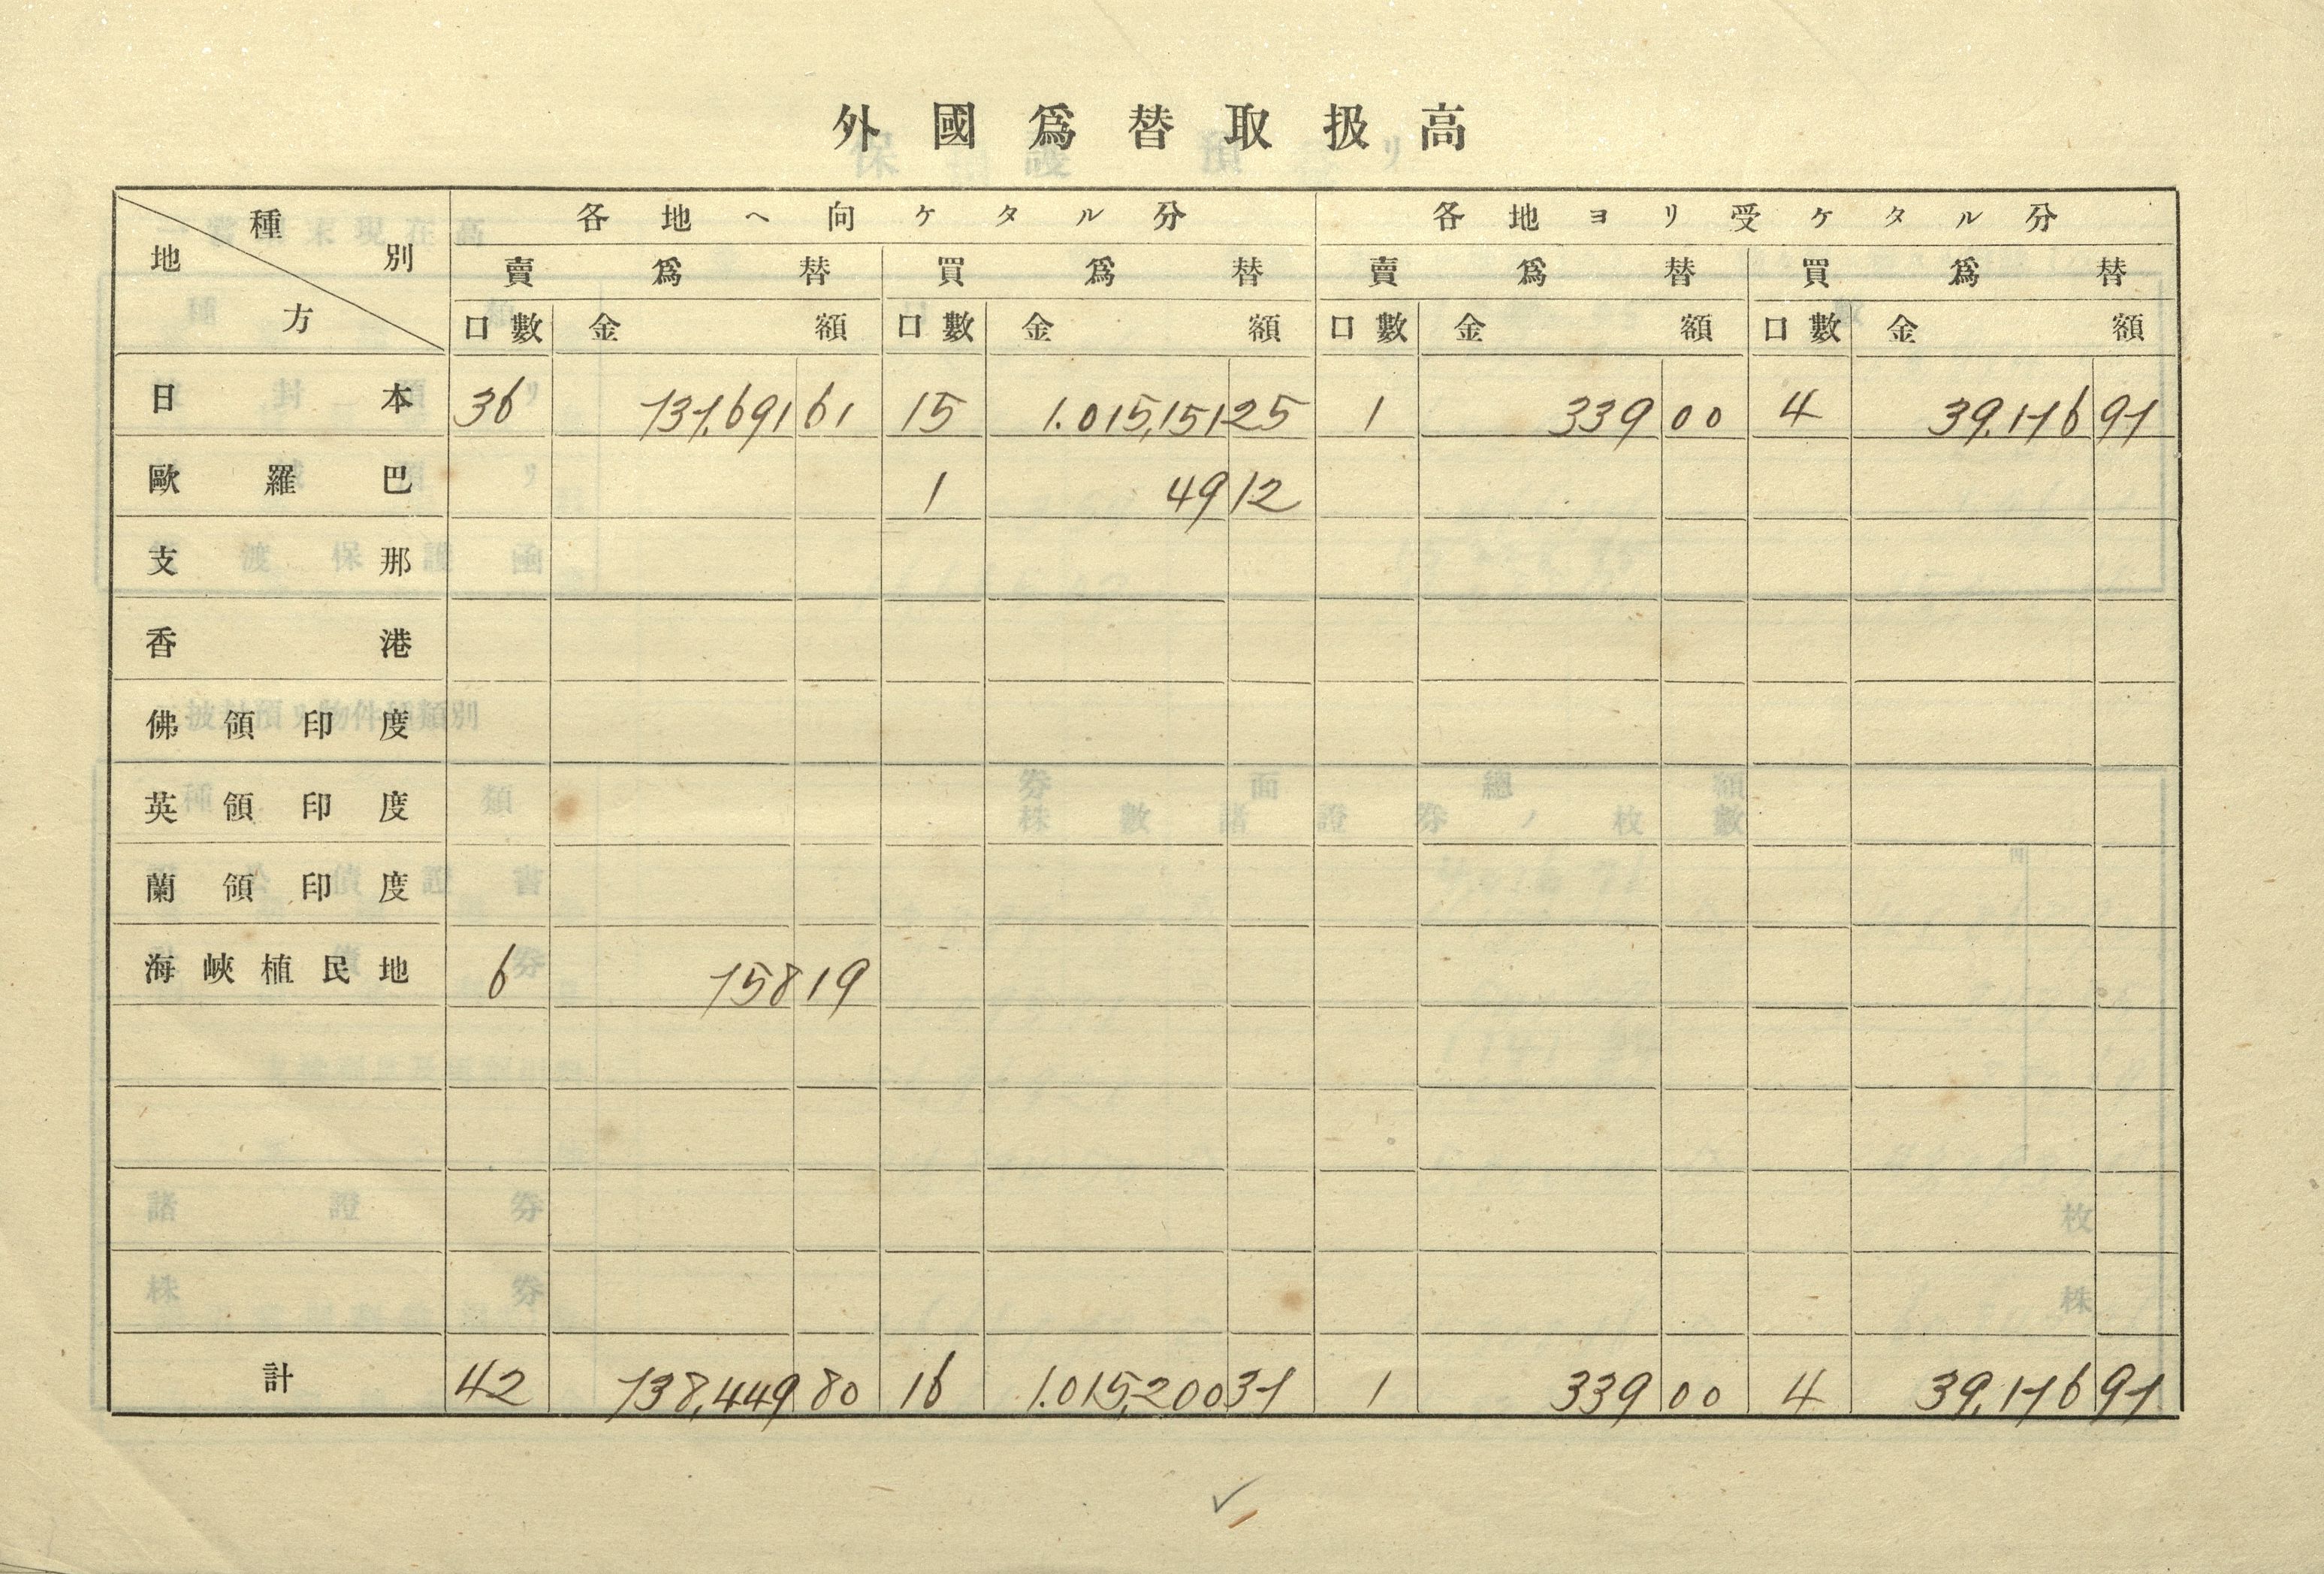 外國爲替取扱高
種別 地方 各地ヘ向ケタル分 各地ヨリ受ケタル分
賣爲替 買爲替 賣爲替 買爲替
口數 金額 口數 金額 口數 金額 口數 金額
日本 36 737,691 61 15 1.015,151 25 1 339 00 4 39,776 97
歐羅巴 1 49 12
支那
香港
佛領印度
英領印度
蘭領印度
海峽植民地 6 758 19
計 42 738,449 80 16 1.015,200 37 1 339 00 4 39,776 97